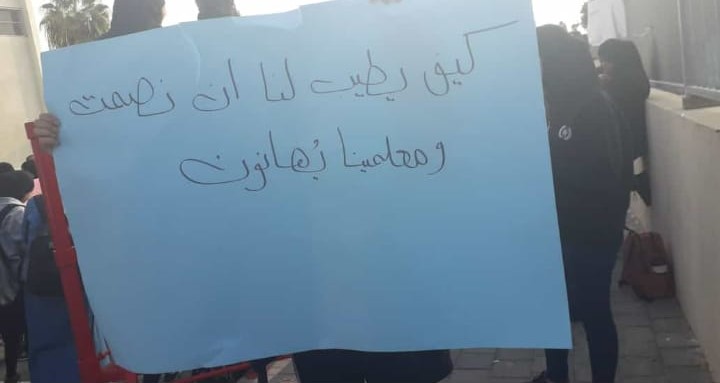 كيف يطيب لنا ان نصمت
ومعلمينا يُهانون